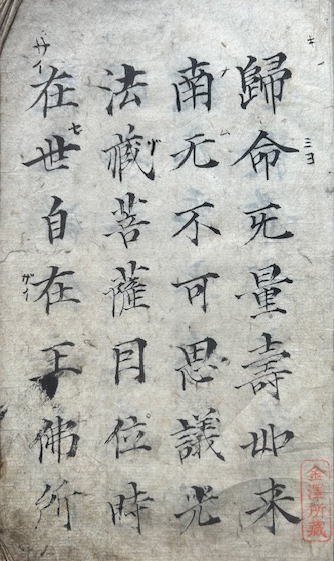 歸命无量壽如来
キ
ミヨ
南无不可思議光
ム
法蔵菩薩因位時
在世自在王佛所
サイ
セ
ザイ
金澤所藏